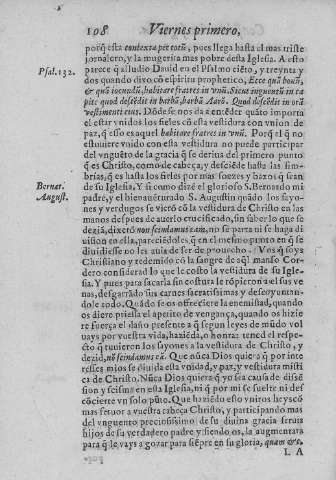 108 Viernes primero,
porq̃ esta contexta per totũ, pues llega hasta el mas triste
jornalero, y la mugerita mas pobre desta Iglesia. A esto
Psal. 132.
parece q̃ alludio Dauid en el Psalmo ciẽto, y treynta y
dos quando dixo cõ espiritu prophetico, Ecce quã bonũ,
& quã iocundũ, habitare fratres in vnũ. Sicut inguentũ in ca
pite quod descẽdit in barbã, barbã Aarõ. Quod descẽdit in orã
vestimenti eius. Dõde se nos da a encẽder quãto importa
el estar vnidos los fieles cõ esta vestidura con vnion de
paz, q̃ esso es aquel habitare fratres in vnũ. Porq̃ el q̃ no
estuuiere vnido con esta vestidura no puede participar
del vnguẽto de la gracia q̃ se deriua del primero punto
q̃ es Christo, como de cabeça, y desciẽde hasta las fim-
brias, q̃ es hasta los fieles por mas soezes y baxos q̃ sean
Bernar.
August.
de su Iglesia. Y si como dize el glorioso S. Bernardo mi
padre, y el bienauẽturado S. Augustin quãdo los sayo-
nes y verdugos se vieró cõ la vestidura de Christo en las
manos despues de auerlo crucificado, sin saber lo que se
dezia, dixerõ non scindamus eam, no se parta ni se haga di
uision en ella, pareciẽdoles q̃ en el mesmo punto en q̃ se
diuidiesse no les auia de ser de prouecho. Vos q̃ soys
Christiano y redemido cõ la sangre de aq̃l manso Cor-
dero considerad lo que le costo la vestidura de su Igle-
sia. Y pues para sacarla sin costura le rõpieron a el sus ve
nas, desgarrãdo sus carnes sacratissimas y descoyuntan-
dole todo. Quãdo se os ofreciere la enemistad, quando
os diere priessa el apetito de vengança, quando os hizie
re fuerça el daño presente a q̃ segun leyes de mũdo vol
uays por vuestra vida, haziẽda, o honra: tened el respe-
cto q̃ tuuieron los sayones a la vestidura de Christo, y
dezid, nõ scindamus eã. Que nũca Dios quiera q̃ por inte
resses mios se diuida esta vnidad, y paz, y vestidura misti
ca de Christo. Nũca Dios quiera q̃ yo sea causa de disse-
sion y scisma en esta Iglesia, ni q̃ por mi se suelte ni des
cõcierte vn solo pũto. Que haziẽdo esso vniros heys cõ
mas feruor a vuestra cabeça Christo, y participando mas
del vnguento preciosissimo de su diuina gracia sereis
hijos de su verdadero padre y siendo os, la augmentara
para q̃ le vays a gozar para siẽpre en su gloria, quam &c.
L A